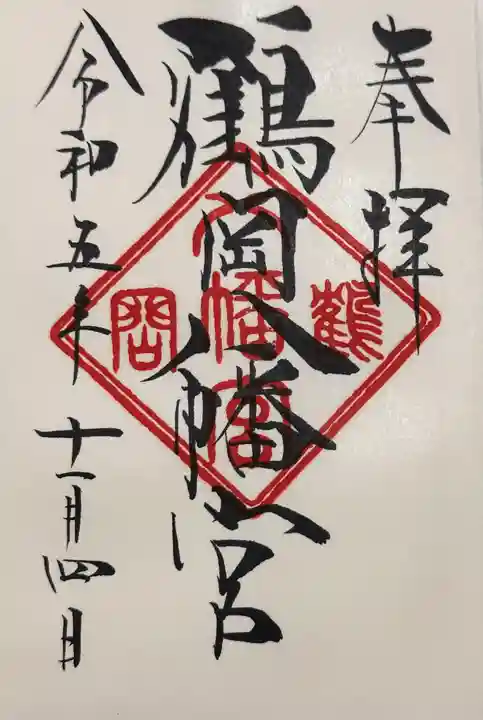 奉拝
鶴岡八幡宮
鶴
八幡宮
岡
令和五年十一月四日